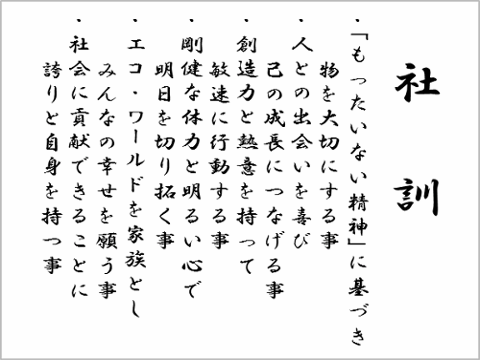 社訓
・「もったいない精神」に基づき
物を大切にする事
・人との出会いを喜び
己の成長につなげる事
・創造力と熱意を持って
敏速に行動する事
・剛健な体力と明るい心で
明日を切り拓く事
・エコ・ワールドを家族とし
みんなの幸せを願う事
・社会に貢献できることに
誇りと自身を持つ事